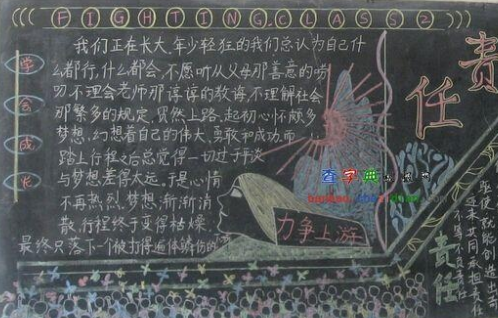 FIGHTING. CLASS 2
学会成长
我们正在长大,年少轻狂的我们总认为自己什
么都行,什么都会,不愿听从父母那善意的唠
叨,不理会老师那谆谆的教诲,不理解社会
那繁多的规定,贸然上路,起初心怀颇多
梦想,幻想着自己的伟大,勇敢和成功,而
路上行程之后总觉得一切过于平淡
与梦想差得太远。于是心情
不再热烈,梦想渐渐消
散,行程终于变得枯燥,
最终只落下一个被打得遍体鳞伤的
力争上游
查字典
责任
责任